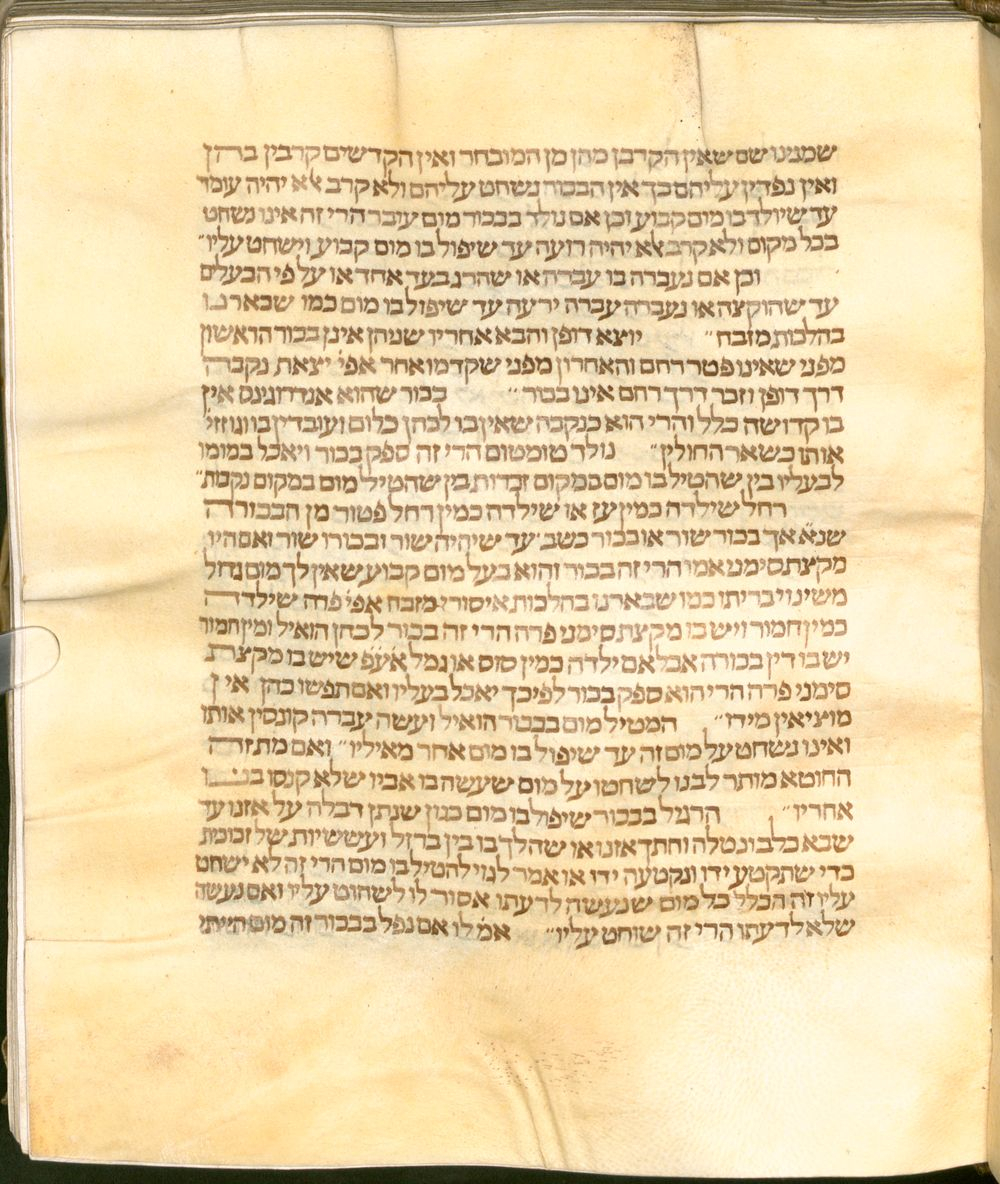 שמנינו שם שאין הקרבן מהן מן המובחר ואין הקדשים קרבין בהן
ואין נפדין עליהם כך אין הבכור נשחט עליהם ולא קרב אלא יהיה עומד
עד שיולד בו מום קבוע וכן אם נולד בבכור מום עובר הרי זה אינו נשחט
בכל מקום ולא קרב אלא יהיה רועה עד שיפול בו מום קבוע וישחט עליו״
וכן אם נעבדה בו עבירה או שהרג בעד אחד או על פי הבעלים
עד שהוקצה או נעבדה עבירה ירעה עד שיפול בו מום כמו שבארנו
בהלכות מזבח״ יוצא דופן והבא אחריו שניהן אינן בכור הראשון
מפני שאינו פטר רחם והאחרון מפני שקדמו אחר אפי׳ יצאת נקבה
דרך דופן וזכר דרך רחם אינו בכור״ בכור שהוא אנדרוגינס אין
בו קדושה כלל והרי הוא כנקבה שאין בו לכהן כלום ועובדין בו וגוזזי׳
אותו כשאר החולין״ נולד טומטום הרי זה ספק בכור ויאכל במומו
לבעליו בין שהטיל בו מום במקום זכרות בין שהטיל מום במקום נקבות״
רחל שילדה כמין עז או שילדה כמין רחל פטור מן הבכורה
שנ׳א׳ אך בכור שור או בכור כשב עד שיהיה שור ובכורו שור ואם היו
מקצת סימני אמו הרי זה בכור והוא בעל מום קבוע שאין לך מום גדול
משינוי ברייתו כמו שבארנו בהלכות איסורי מזבח אפי׳ פרה שילדה
כמין חמור ויש בו מקצת סימני פרה הרי זה בכור לכהן הואיל ומין חמור
יש בו דין בכורה אבל אם ילדה כמין סוס או גמל אע״פ שיש בו מקצת
סימני פרה הרי הוא ספק בכור לפיכך יאכל בעליו ואם תפשו כהן אין
מוציאין מידו״ המטיל מום בבכור הואיל ועשה עבירה קונסין אותו
ואינו נשחט על מום זה עד שיפול בו מום אחר מאיליו״ ואם מת זה
החוטא מותר לבנו לשחטו על מום שעשה בו אביו שלא קנסו בנו
אחריו״ הרגיל בבכור שיפול בו מום כגון שנתן דבלה על אזנו עד
שבא כלב ונטלה וחתך אזנו או שהלך בו בין ברזל ועששיות של זכוכית
כדי שתקטע ידו ונקטעה ידו או אמר לגוי להטיל בו מום הרי זה לא ישחט
עליו זה הכלל כל מום שנעשה לדעתו אסור לו לשחוט עליו ואם נעשה
שלא לדעתו הרי זה שוחט עליו״ אמ׳ לו אם נפל בבכור זה מום הייתי